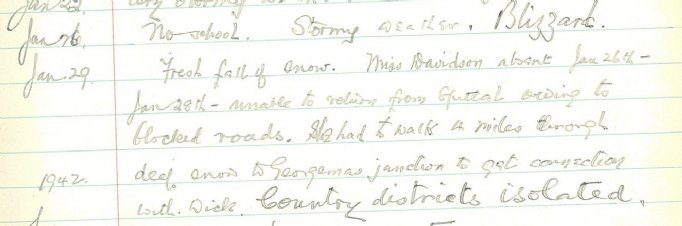 Jan. 26. No school. Stormy weather. Blizzard.
Jan. 29. Fresh fall of snow. Miss Davidson absent Jan 26th –
Jan 28th – unable to return from owing to
blocked roads. She had to walk 4 miles through
1942. deep snow to Georgemas junction to get connection
with Wick. Country districts isolated.